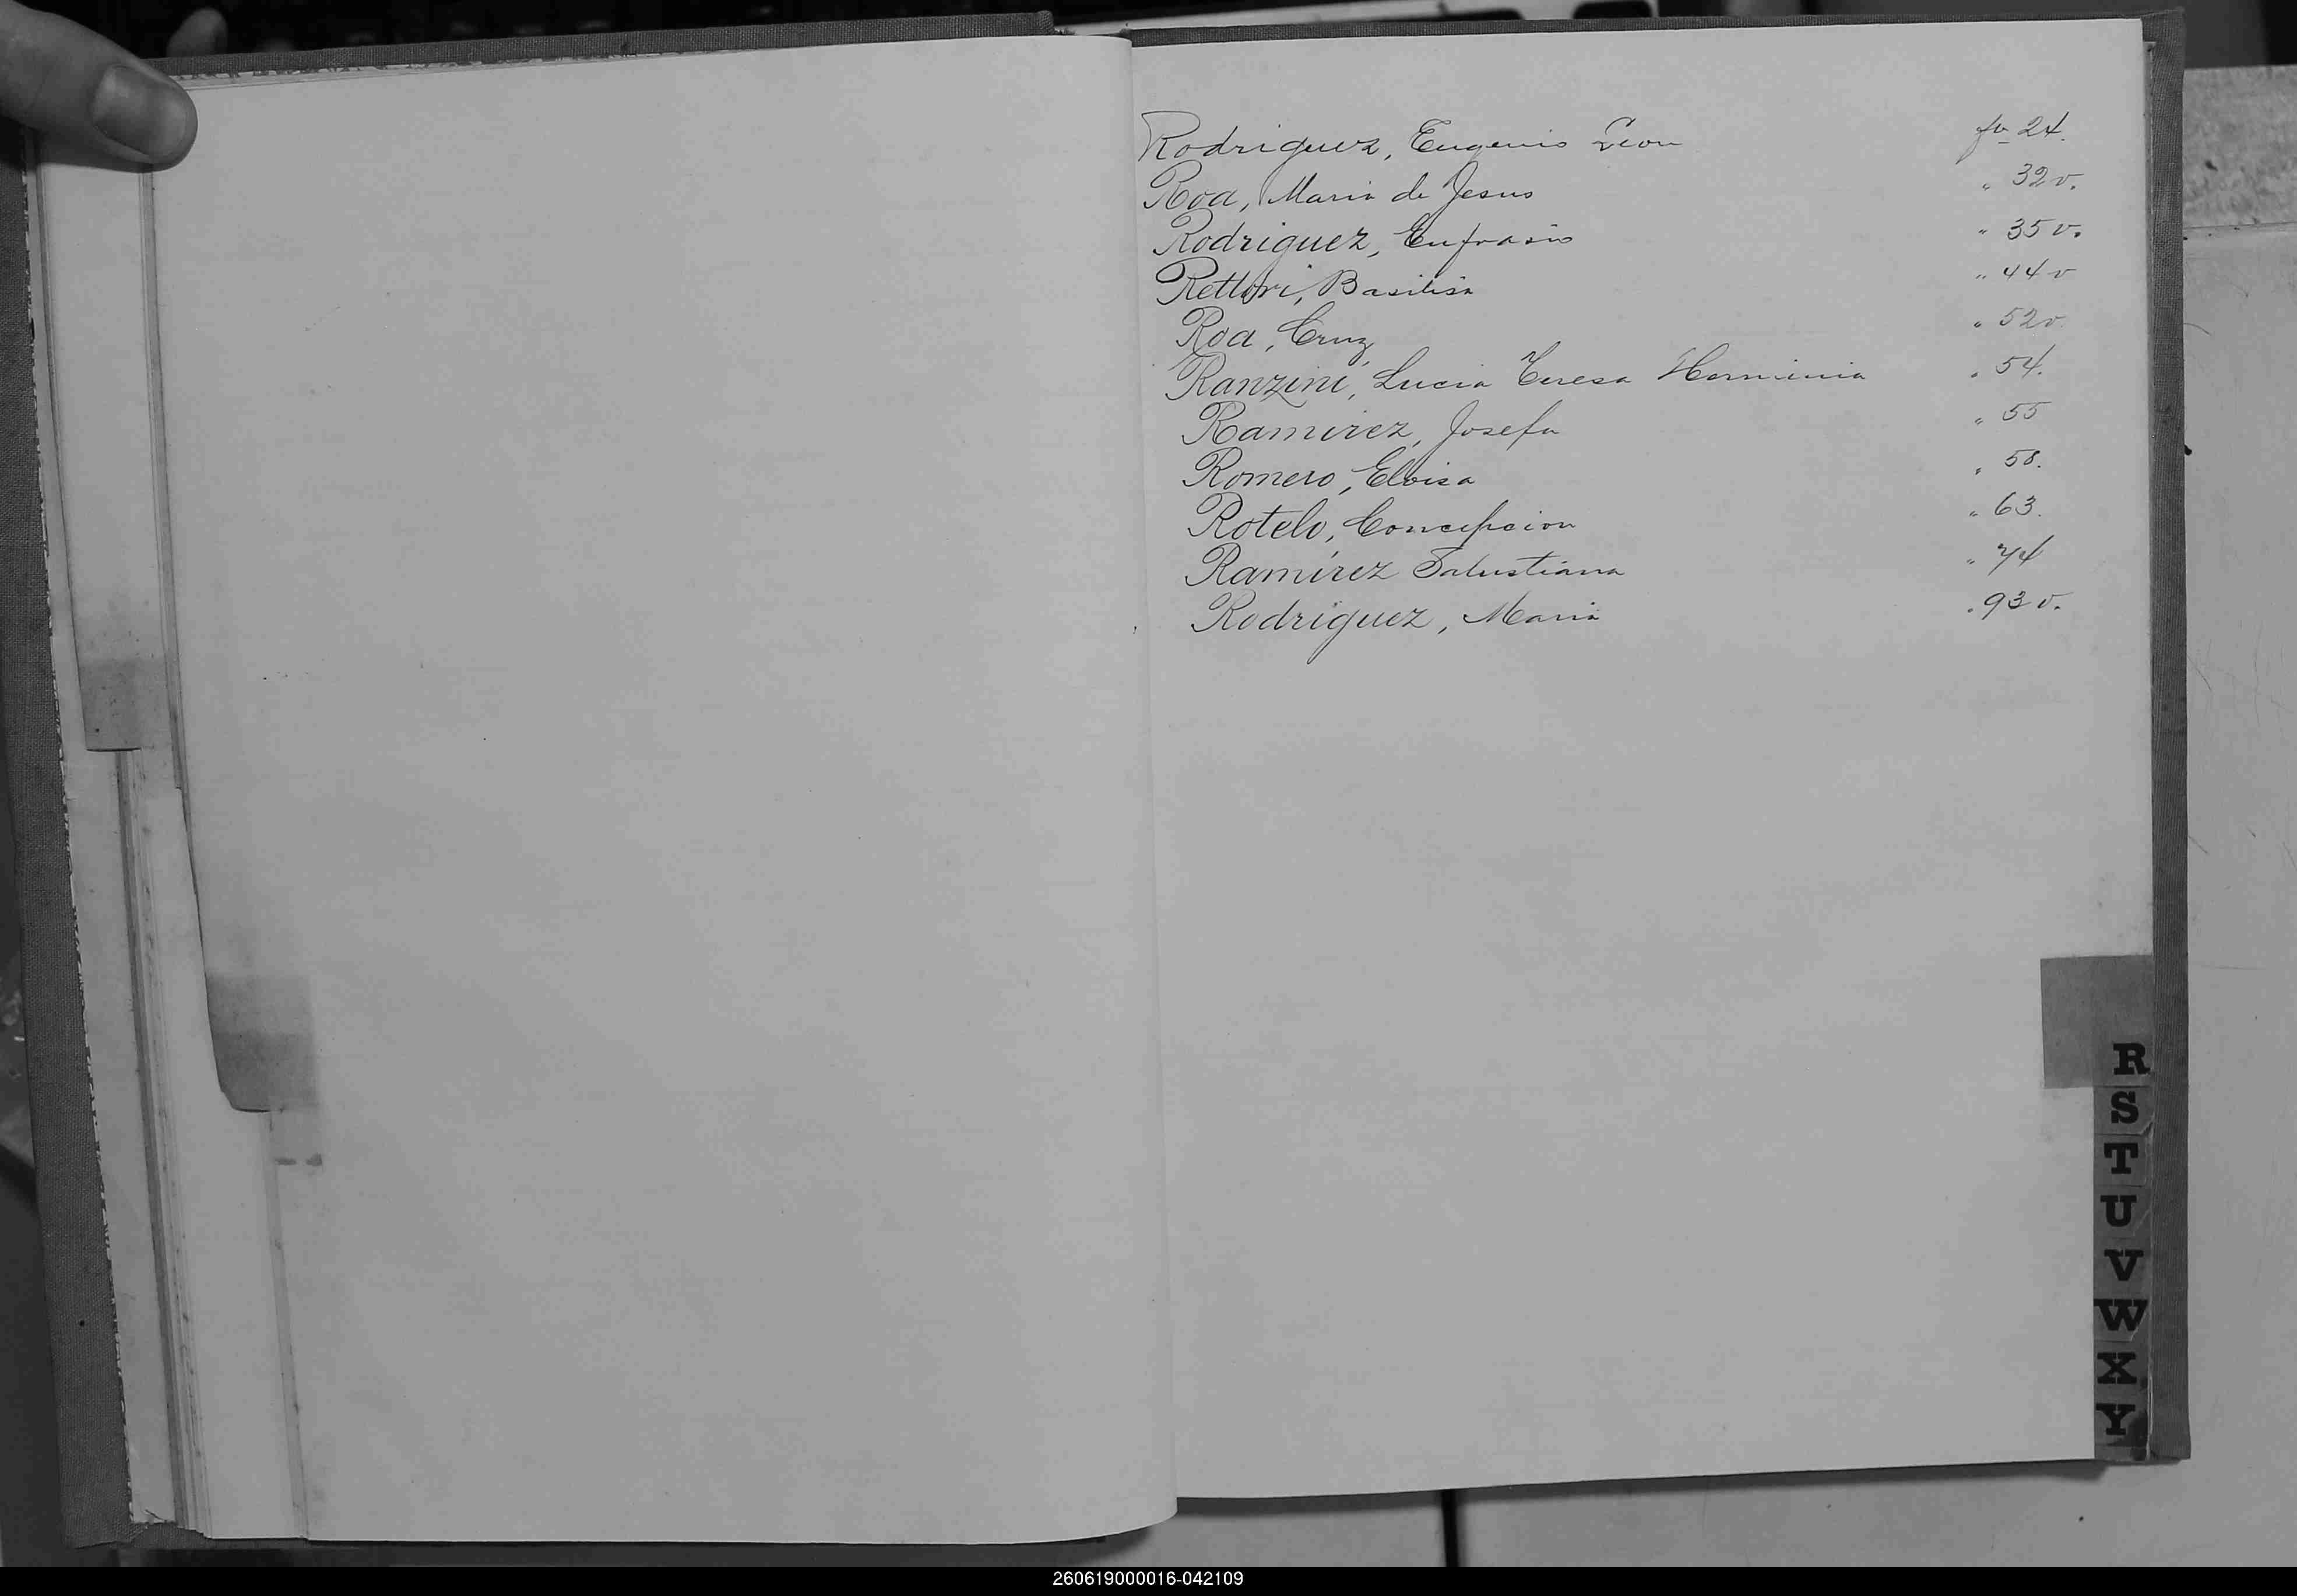 Rodriguez, Eugenio Leon fo 24.
Roa, Maria de Jesus " 32v.
Rodriguez, Eufrasio " 35v.
Rettori, Basilisa " 44v
Roa, Cruz " 52v.
Ranzini, Lucia Teresa Herminia " 54.
Ramirez, Josefa " 55
Romero, Eloisa " 58.
Rotelo, Concepcion " 63.
Ramirez Salustiana " 74
Rodriguez, Maria " 93v.
R
S
T
U
V
W
X
Y
260619000016-042109